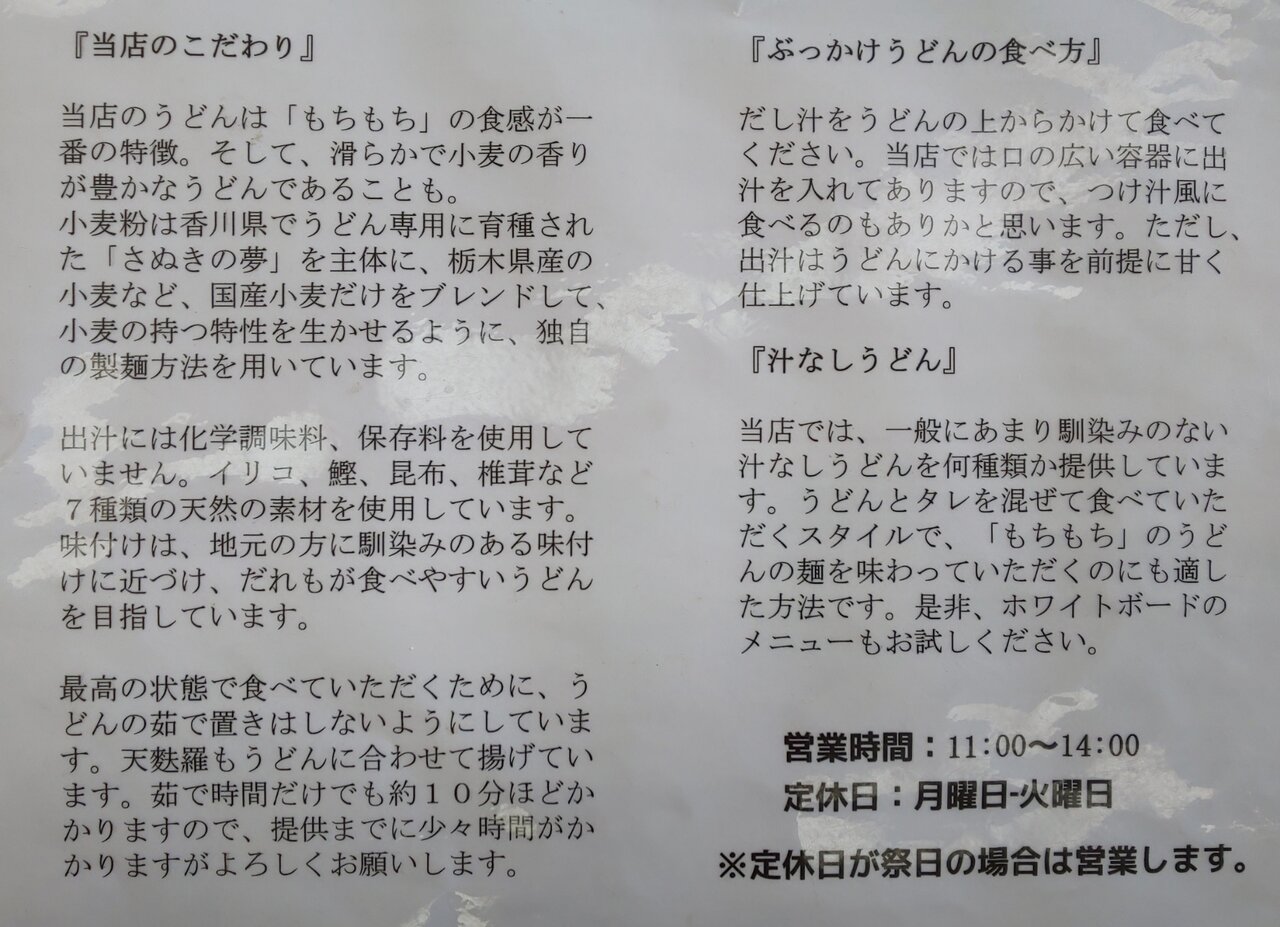 『当店のこだわり』
当店のうどんは「もちもち」の食感が一
番の特徴。そして、滑らかで小麦の香り
が豊かなうどんであることも。
小麦粉は香川県でうどん専用に育種され
た「さぬきの夢」を主体に、栃木県産の
小麦など、国産小麦だけをブレンドして、
小麦の持つ特性を生かせるように、独自
の製麺方法を用いています。
出汁には化学調味料、保存料を使用して
いません。イリコ、鰹、昆布、椎茸など
７種類の天然の素材を使用しています。
味付けは、地元の方に馴染みのある味付
けに近づけ、だれもが食べやすいうどん
を目指しています。
最高の状態で食べていただくために、う
どんの茹で置きはしないようにしていま
す。天麩羅もうどんに合わせて揚げてい
ます。茹で時間だけでも約１０分ほどか
かりますので、提供までに少々時間がか
かりますがよろしくお願いします。
『ぶっかけうどんの食べ方』
だし汁をうどんの上からかけて食べて
ください。当店では口の広い容器に出
汁を入れてありますので、つけ汁風に
食べるのもありかと思います。ただし、
出汁はうどんにかける事を前提に甘く
仕上げています。
『汁なしうどん』
当店では、一般にあまり馴染みのない
汁なしうどんを何種類か提供していま
す。うどんとタレを混ぜて食べていた
だくスタイルで、「もちもち」のうど
んの麺を味わっていただくのにも適し
た方法です。是非、ホワイトボードの
メニューもお試しください。
営業時間：11:00〜14:00
定休日：月曜日-火曜日
※定休日が祭日の場合は営業します。